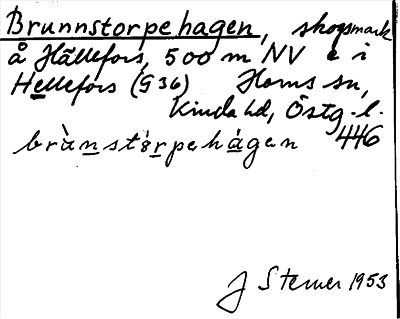 Brunnstorpehagen, skogsmark
å Hällefors, 500 m NV e i
Hellefors (G 36) Horns sn,
Kinda hd, Östg.l.
brùnstòrpehágen 446
J Sterner 1953